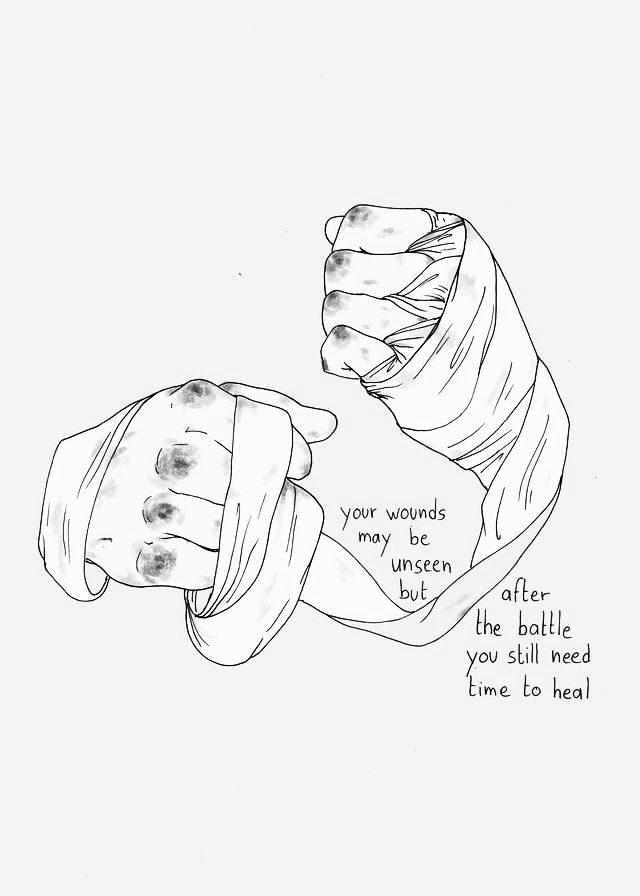 your wounds
may be
unseen
but
after
the battle
you still need
time to heal